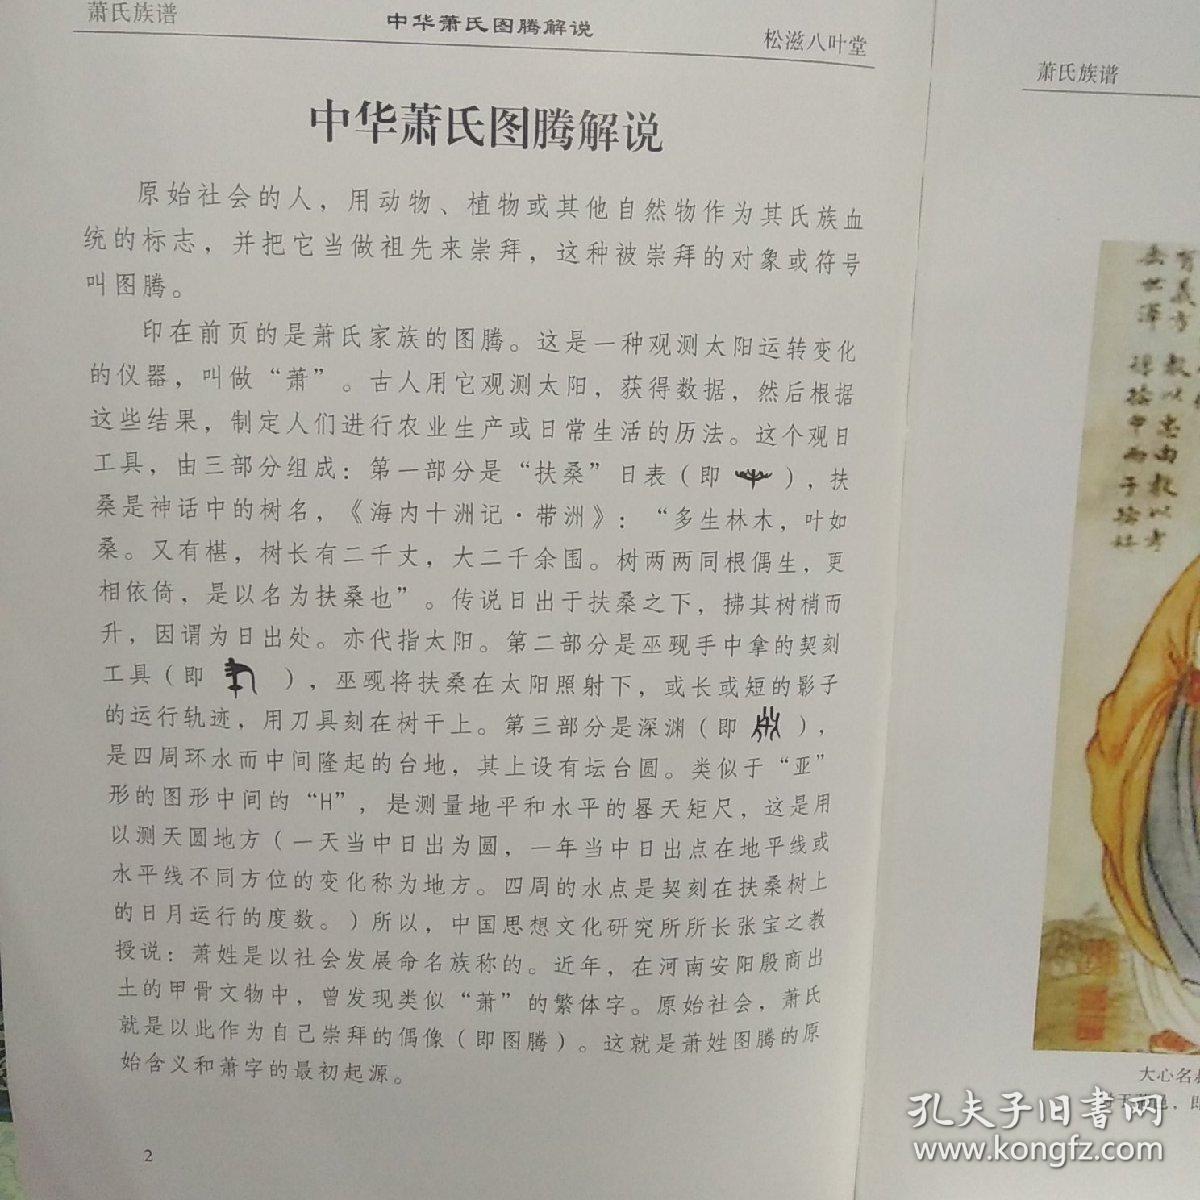 萧氏族谱
中华萧氏图腾解说
松滋八叶堂
中华萧氏图腾解说
原始社会的人，用动物、植物或其他自然物作为其氏族血
统的标志，并把它当做祖先来崇拜，这种被崇拜的对象或符号
叫图腾。
印在前页的是萧氏家族的图腾。这是一种观测太阳运转变化
的仪器，叫做“萧”。古人用它观测太阳，获得数据，然后根据
这些结果，制定人们进行农业生产或日常生活的历法。这个观日
工具，由三部分组成：第一部分是“扶桑”日表（即 ），扶
桑是神话中的树名，《海内十洲记·带洲》：“多生林木，叶如
桑。又有椹，树长有二千丈，大二千余围。树两两同根偶生，更
相依倚，是以名为扶桑也”。传说日出于扶桑之下，拂其树梢而
升，因谓为日出处。亦代指太阳。第二部分是巫觋手中拿的契刻
工具（即 ），巫觋将扶桑在太阳照射下，或长或短的影子
的运行轨迹，用刀具刻在树干上。第三部分是深渊（即 ），
是四周环水而中间隆起的台地，其上设有坛台圆。类似于“亚”
形的图形中间的“H”，是测量地平和水平的晷天矩尺，这是用
以测天圆地方（一天当中日出为圆，一年当中日出点在地平线或
水平线不同方位的变化称为地方。四周的水点是契刻在扶桑树上
的日月运行的度数。）所以，中国思想文化研究所所长张宝之教
授说：萧姓是以社会发展命名族称的。近年，在河南安阳殷商出
土的甲骨文物中，曾发现类似“萧”的繁体字。原始社会，萧氏
就是以此作为自己崇拜的偶像（即图腾）。这就是萧姓图腾的原
始含义和萧字的最初起源。
2
萧氏族谱
大心名
孔夫子旧书网
www.kongfz.com